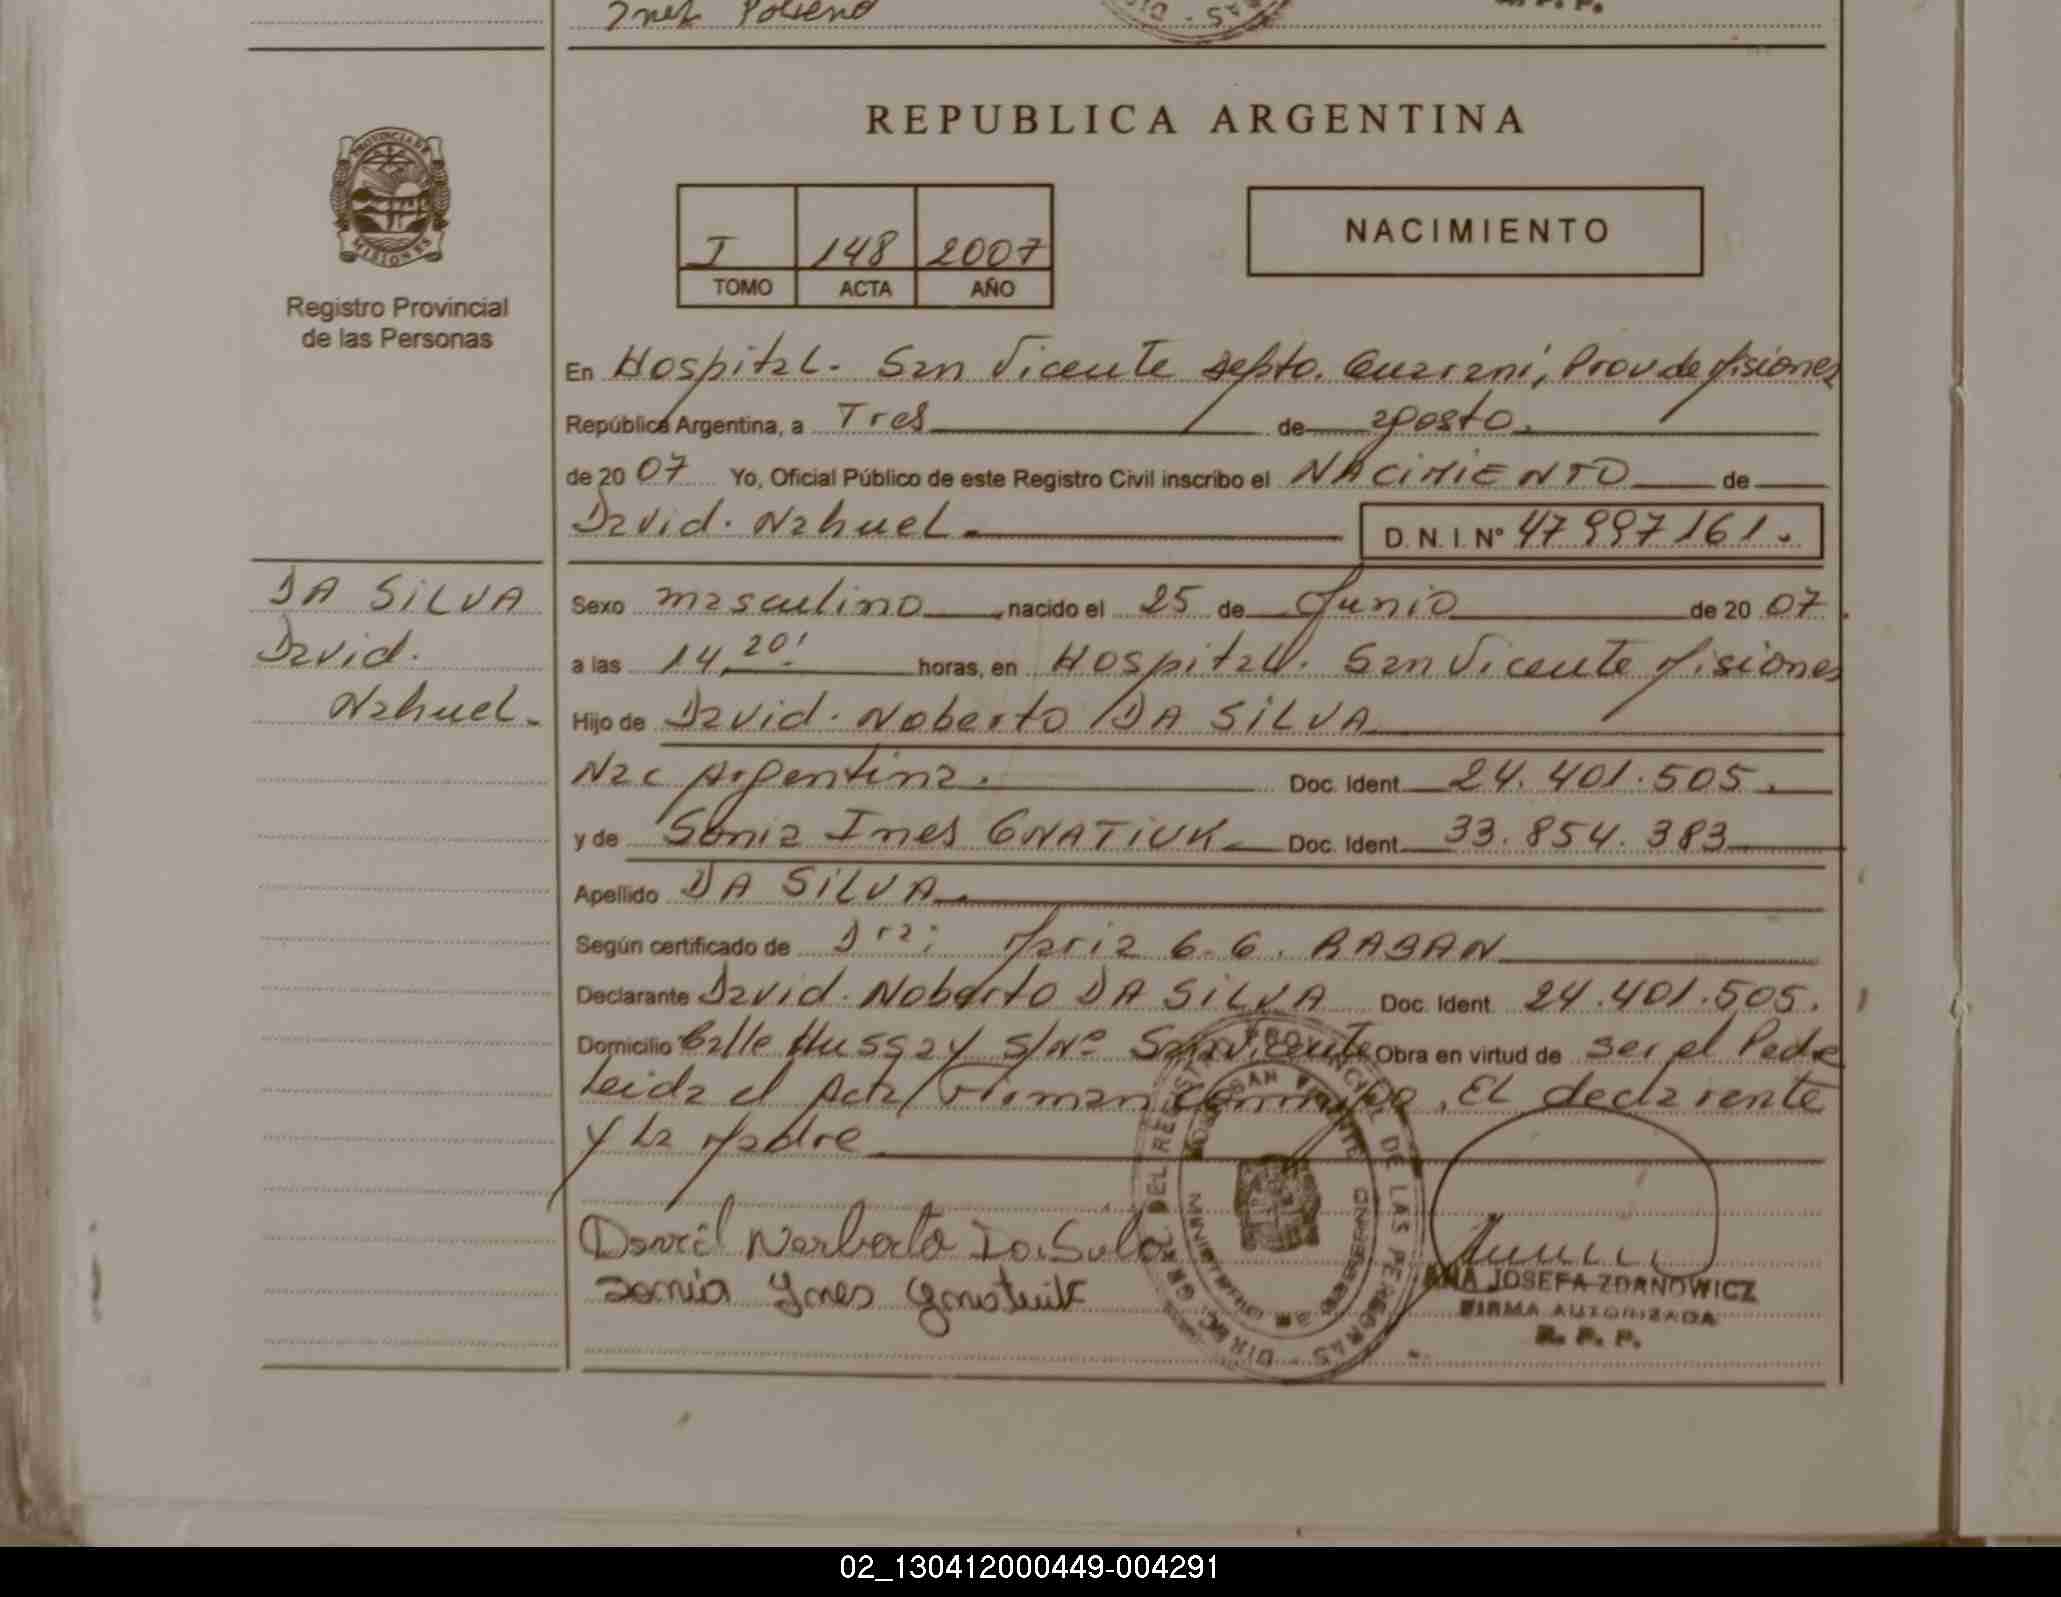 Inez
REPUBLICA ARGENTINA
PROVINCIA DE
MISIONES
Registro Provincial
de las Personas
I 148 2007
TOMO ACTA AÑO
NACIMIENTO
En Hospital. San Vicente depto. Guarani, Prov de Misiones
República Argentina, a Tres de agosto.
de 20 07 Yo, Oficial Público de este Registro Civil inscribo el NACIMIENTO de
David. Nahuel D. N. I. Nº 47997161.
DA SILVA
David.
Nahuel.
Sexo masculino, nacido el 25 de Junio de 20 07.
a las 14,20' horas, en Hospital. San Vicente Misiones
Hijo de David. Noberto DA SILVA
Nac Argentina. Doc. Ident. 24.401.505.
y de Sonia Ines GNATIUK Doc. Ident. 33.854.383
Apellido DA SILVA.
Según certificado de Dra: Maria G. G. RABAN
Declarante David. Noberto DA SILVA Doc. Ident. 24.401.505.
Domicilio Calle Hussay s/Nº San Vicente Obra en virtud de ser el Padre
Leida el Acta, Firman conmigo, EL declarente
y La Madre
David Norberto Da Silva
Sonia Ynes Gnatiuk
ANA JOSEFA ZDANOWICZ
FIRMA AUTORIZADA
R. P. P.
02_130412000449-004291